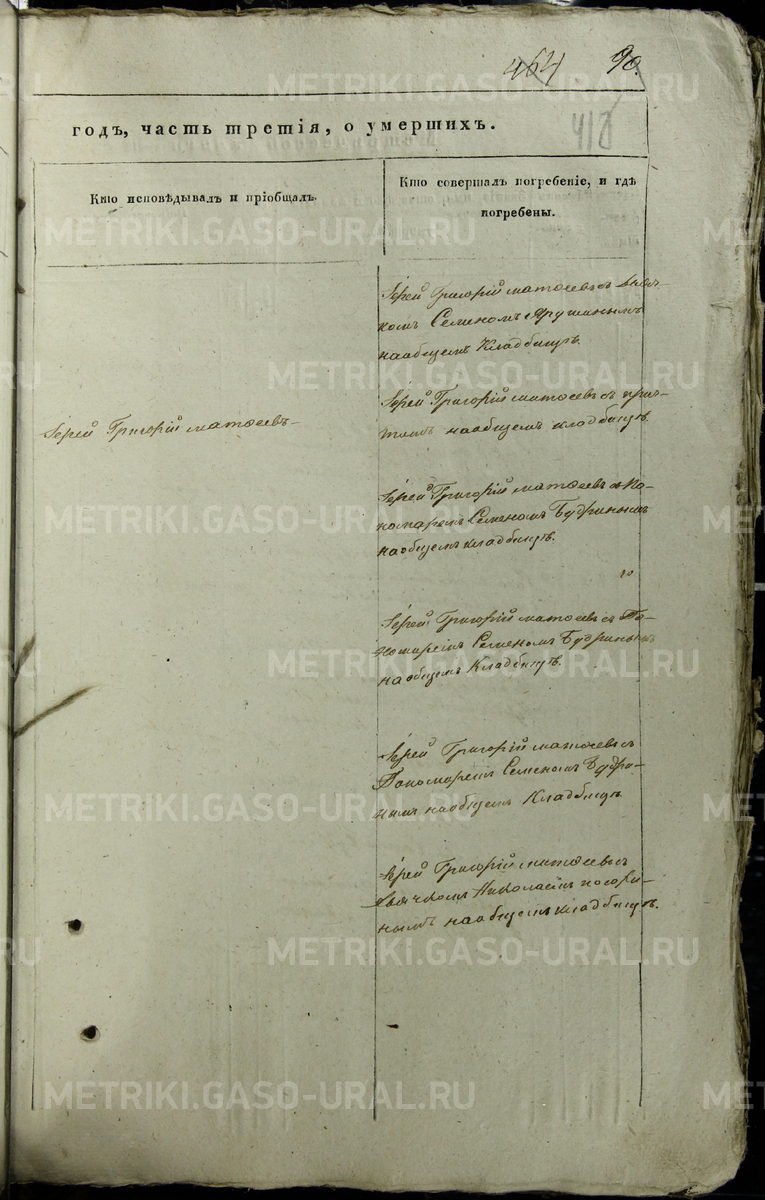 464 90.
418
годъ, часть третія, о умершихъ.
Кто исповѣдывалъ и пріобщалъ.
Кто совершалъ погребеніе, и гдѣ
погребены.
Іерей Григорій матѳеевъ съ дьяч-
комъ Семеномъ
наобщемъ Кладбищѣ.
Іерей Григорій матѳеевъ съ прич-
томъ наобщемъ кладбищѣ.
Іерей Григорій матѳеевъ-
Іерей Григорій матѳеевъ съ по-
номаремъ Семеномъ Будринымъ
наобщемъ кладбищѣ.
Іерей Григорій матѳеевъ съ По-
номаремъ Семеномъ Будринымъ
наобщемъ Кладбищѣ.
Іерей Григорій матѳеевъ съ
Пономаремъ Семеномъ Будри-
нымъ наобщемъ Кладбищѣ
Іерей Григорій матѳеевъ съ
дьячкомъ Николаемъ
нымъ наобщемъ кладбищѣ.
METRIKI.GASO-URAL.RU